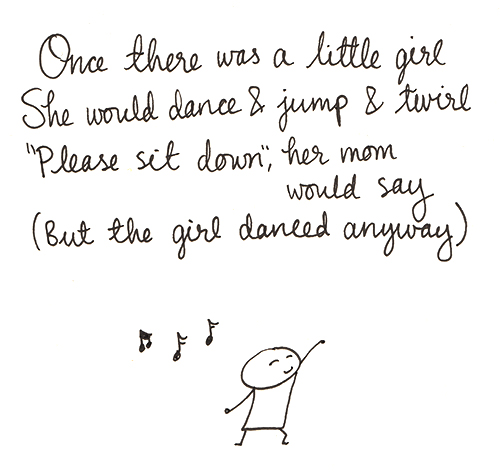 Once there was a little girl
She would dance & jump & twirl
"Please sit down", her mom
would say
(But the girl danced anyway)